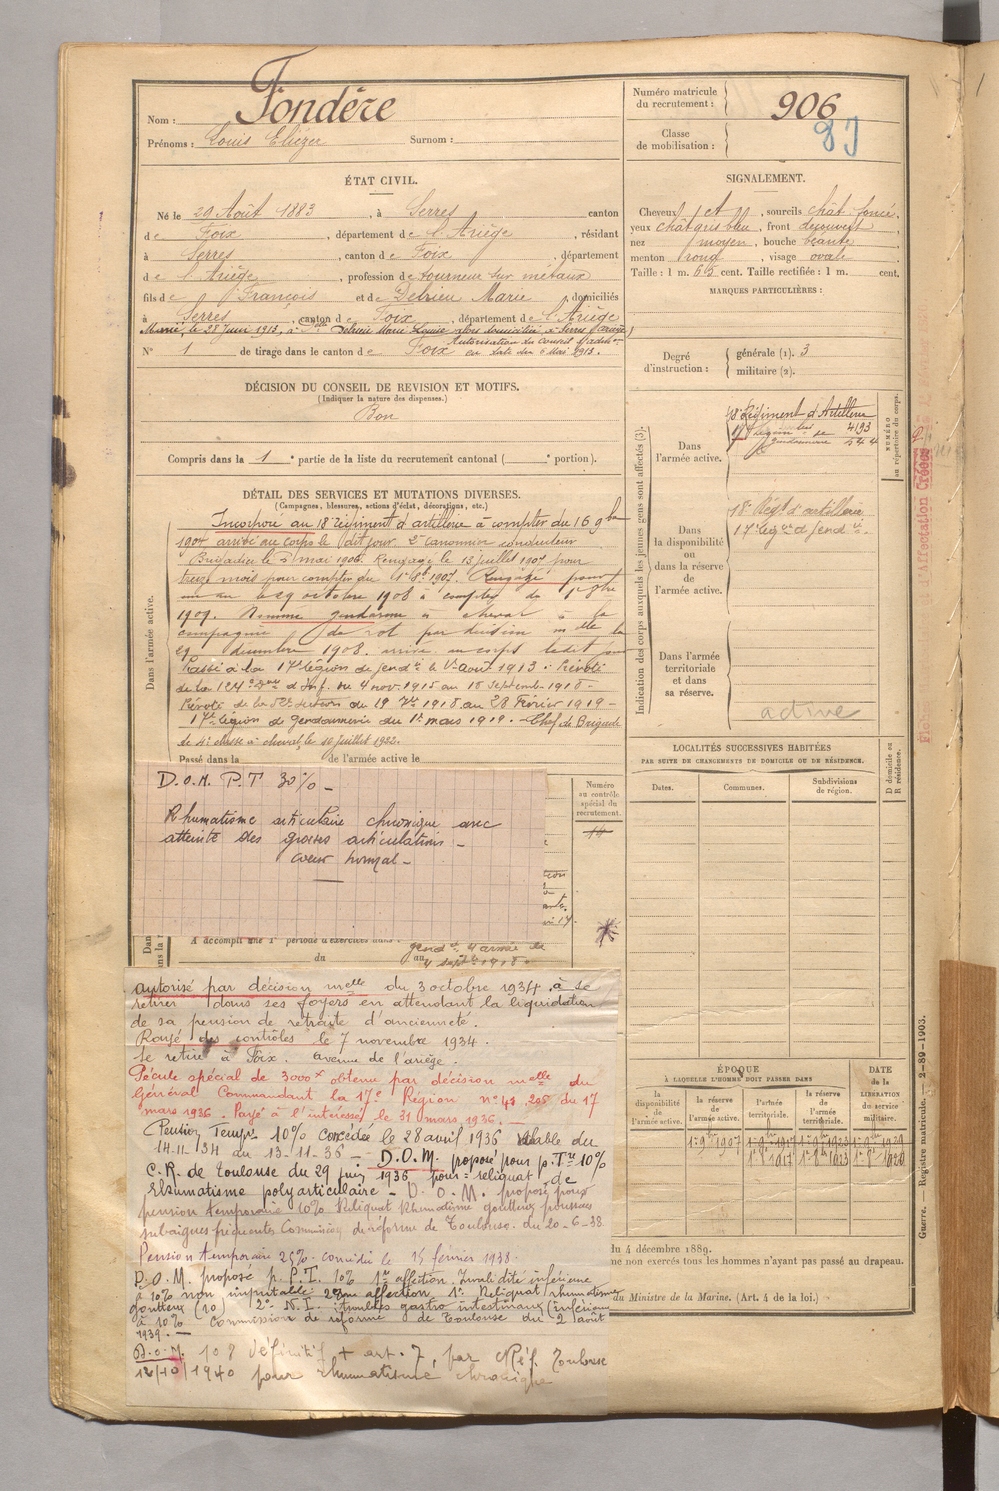 Nom : Fondère
Prénoms : Louis Eliézer Surnom :
Numéro matricule du recrutement : 906
Classe de mobilisation :
ÉTAT CIVIL.
Né le 29 Août 1883, à Serres canton
de Foix, département de l'Ariège, résidant
à Serres, canton de Foix, département
de l'Ariège, profession de tourneur sur métaux
fils de François et de Debrieu Marie, domiciliés
à Serres, canton de Foix, département de l'Ariège
Marié, le 28 Juin 1913, à Dlle Debrieu Marie Louise domiciliée à Serres (Ariège)
Autorisation du Conseil d'adon
en date du 6 Mai 1913.
N° 1 de tirage dans le canton de Foix
SIGNALEMENT.
Cheveux chat, sourcils chât. foncé,
yeux chât gris bleu, front découvert
nez moyen, bouche béante
menton rond, visage ovale
Taille : 1 m. 65 cent. Taille rectifiée : 1 m. cent.
MARQUES PARTICULIÈRES :
DÉCISION DU CONSEIL DE REVISION ET MOTIFS.
(Indiquer la nature des dispenses.)
Bon
Compris dans la 1e partie de la liste du recrutement cantonal ( e portion).
Degré d'instruction : générale (1). 3
militaire (2).
DÉTAIL DES SERVICES ET MUTATIONS DIVERSES.
(Campagnes, blessures, actions d'éclat, décorations, etc.)
Dans l'armée active.
Incorporé au 18e Régiment d'artillerie à compter du 16 9bre
1904 arrivé au corps le dit jour, 2e canonnier conducteur
Brigadier le 2 mai 1906. Rengagé le 13 juillet 1907 pour
treize mois pour compter du 1er 8bre 1907. Rengagé pour
un an le 29 octobre 1908 à compter du 1er
1907. Nommé gendarme à cheval à la
compagnie du Lot par décision mlle du
29 décembre 1908. arrivé au corps ledit jour
Passé à la 17e légion de gendie le 1er Août 1913. Prévôté
de la 124e don d'Inf. du 4 nov. 1915 au 18 Septemb. 1918 -
Prévôté de la 52e division du 19 7bre 1918 au 28 Février 1919 -
17e légion de Gendarmerie du 1er mars 1919. - Chef de Brigade
de 4e classe à cheval, le 10 Juillet 1922.
Passé dans la de l'armée active le
Indication des corps auxquels les jeunes gens sont affectés (3).
Dans l'armée active.
18e Régiment d'Artillerie
17e légion de 4193
gendarmerie 544
NUMÉRO au répertoire du corps.
Dans la disponibilité ou dans la réserve de l'armée active.
18e Régt d'artillerie
17e légon de Gendie.
Dans l'armée territoriale et dans sa réserve.
active
D. O. M. P. T 30% -
Rhumatisme articulaire chronique avec
atteinte des grosses articulations -
coeur normal -
Numéro au contrôle spécial du recrutement.
LOCALITÉS SUCCESSIVES HABITÉES
PAR SUITE DE CHANGEMENTS DE DOMICILE OU DE RÉSIDENCE.
Dates. Communes. Subdivisions de région. D domicile ou R résidence.
A accompli une 1re période d'exercices dans
du au
Autorisé par décision melle du 3 octobre 1934 à se
retirer dans ses foyers en attendant la liquidation
de sa pension de retraite d'ancienneté.
Rayé des contrôles le 7 novembre 1934.
Se retire à Foix. avenue de l'ariège.
Pécule spécial de 3000 f obtenu par décision melle du
Général Commandant la 17e Région n° 41.205 du 17
mars 1936. Payé à l'intéressé le 31 mars 1936.
Pension Tempre 10% concédée le 28 avril 1936 valable du
14-11-34 au 13-11-36 - D.O.M. proposé pour p. Tre 10%
C.R. de Toulouse du 29 juin 1936 pour reliquat de
Rhumatisme polyarticulaire - D. O. M. proposé pour
pension temporaire 10% Reliquat Rhumatisme goutteux poussées
subaigues fréquentes Commission de réforme de Toulouse. du 20-6-38
Pension temporaire 25% concédée le 15 février 1938-
D.O.M. proposé p. P.T. 10% 1re affection. Invalidité inférieure
à 10% non imputable 2ème affection 1° Reliquat rhumatisme
goutteux (10) 2° N.I. : troubles gastro intestinaux (inférieur
à 10% Commission de réforme de Toulouse du 2 août
1939. -
D.O.M. définitif + art. 7, par Réf. Toulouse
12/10/1940 pour rhumatisme chronique
ÉPOQUE
À LAQUELLE L'HOMME DOIT PASSER DANS
la disponibilité de l'armée active. la réserve de l'armée active. l'armée territoriale. la réserve de l'armée territoriale.
DATE de la LIBÉRATION du service militaire.
du 4 décembre 1889.
me non exercés tous les hommes n'ayant pas passé au drapeau.
du Ministre de la Marine. (Art. 4 de la loi.)
Guerre. — Registre matricule. — 2-89-1903.